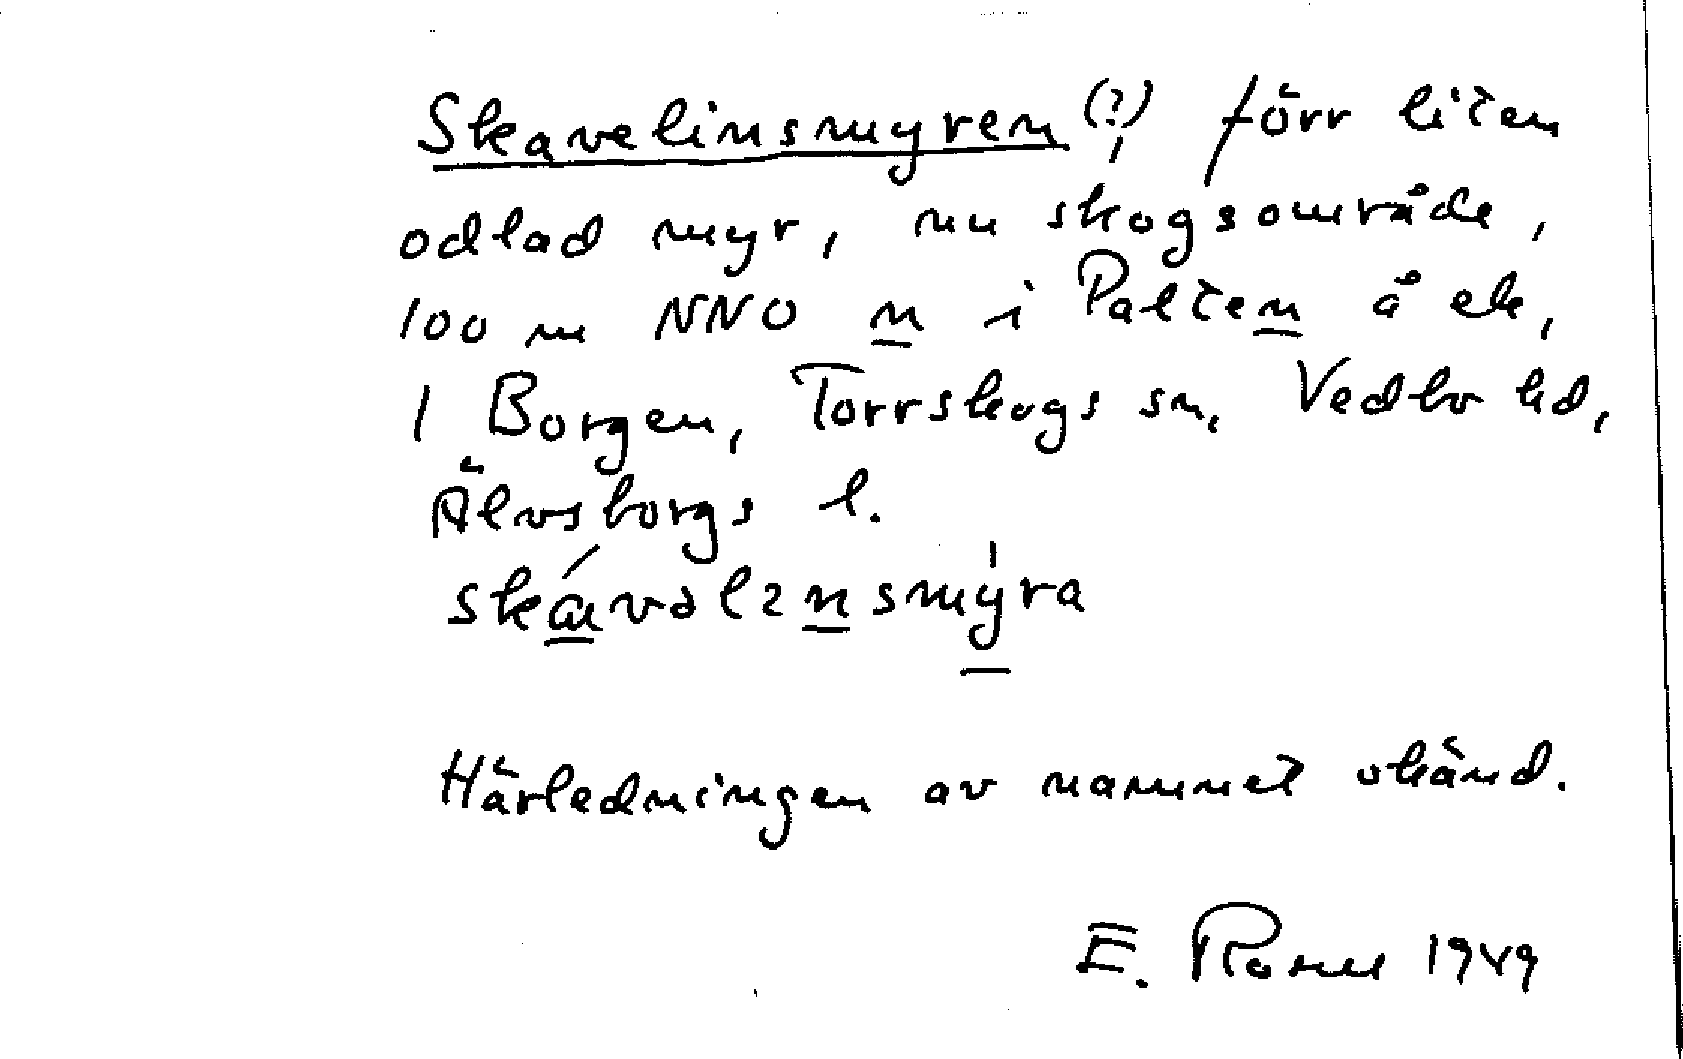 Skavelinsmyren (?), förr liten
odlad myr, nu skogsområde,
100 m NNO n i Palten å ek,
1 Borgen, Torrskogs sn, Vedbo hd,
Älvsborgs l.
skávəlınsmy̍ra
Härledningen av namnet okänd.
E. 1949